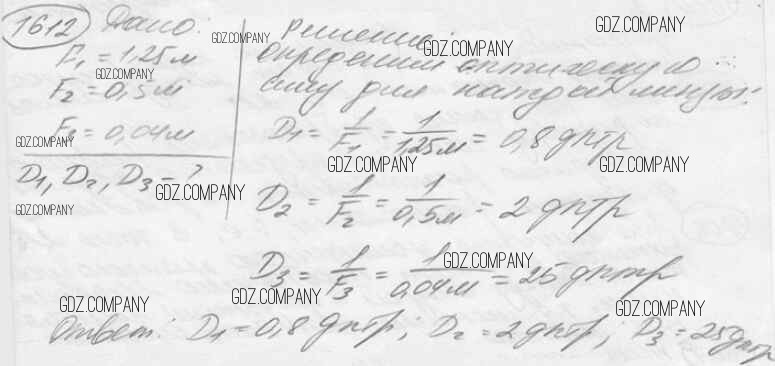 1612 Дано:
F₁ = 1,25 м
F₂ = 0,5 м
F₃ = 0,04 м
D₁, D₂, D₃ = ?
Решение:
определим оптическую
силу для каждой линзы:
D₁ = 1/F₁ = 1/1,25м = 0,8 дптр
D₂ = 1/F₂ = 1/0,5м = 2 дптр
D₃ = 1/F₃ = 1/0,04м = 25 дптр
Ответ: D₁ = 0,8 дптр; D₂ = 2 дптр; D₃ = 25 дптр
GDZ.COMPANY
GDZ.COMPANY
GDZ.COMPANY
GDZ.COMPANY
GDZ.COMPANY
GDZ.COMPANY
GDZ.COMPANY
GDZ.COMPANY
GDZ.COMPANY
GDZ.COMPANY
GDZ.COMPANY
GDZ.COMPANY
GDZ.COMPANY